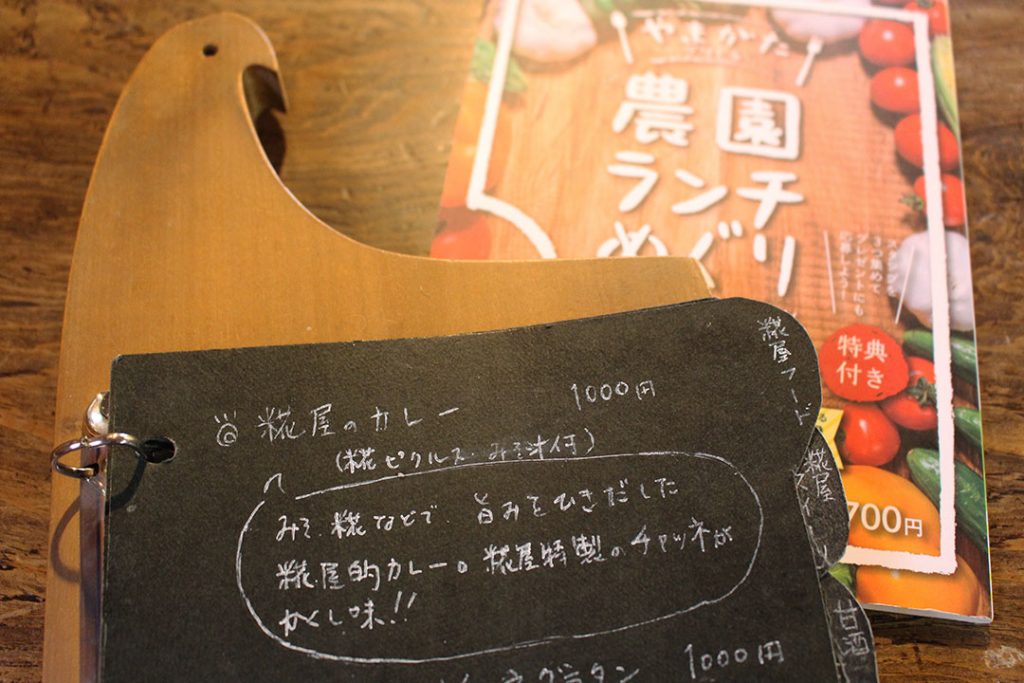 やまがた
農園
ランチ
めぐり
スタンプを
3つ集めて
プレゼントにも
応募しよう！
特典
付き
700円
糀屋フード
糀屋
甘酒
糀屋のカレー 1000円
(糀ピクルス・みそ汁付)
みそ、糀などで、旨みをひきだした
糀屋的カレー。糀屋特製のチャツネが
かくし味!!
グラタン 1000円